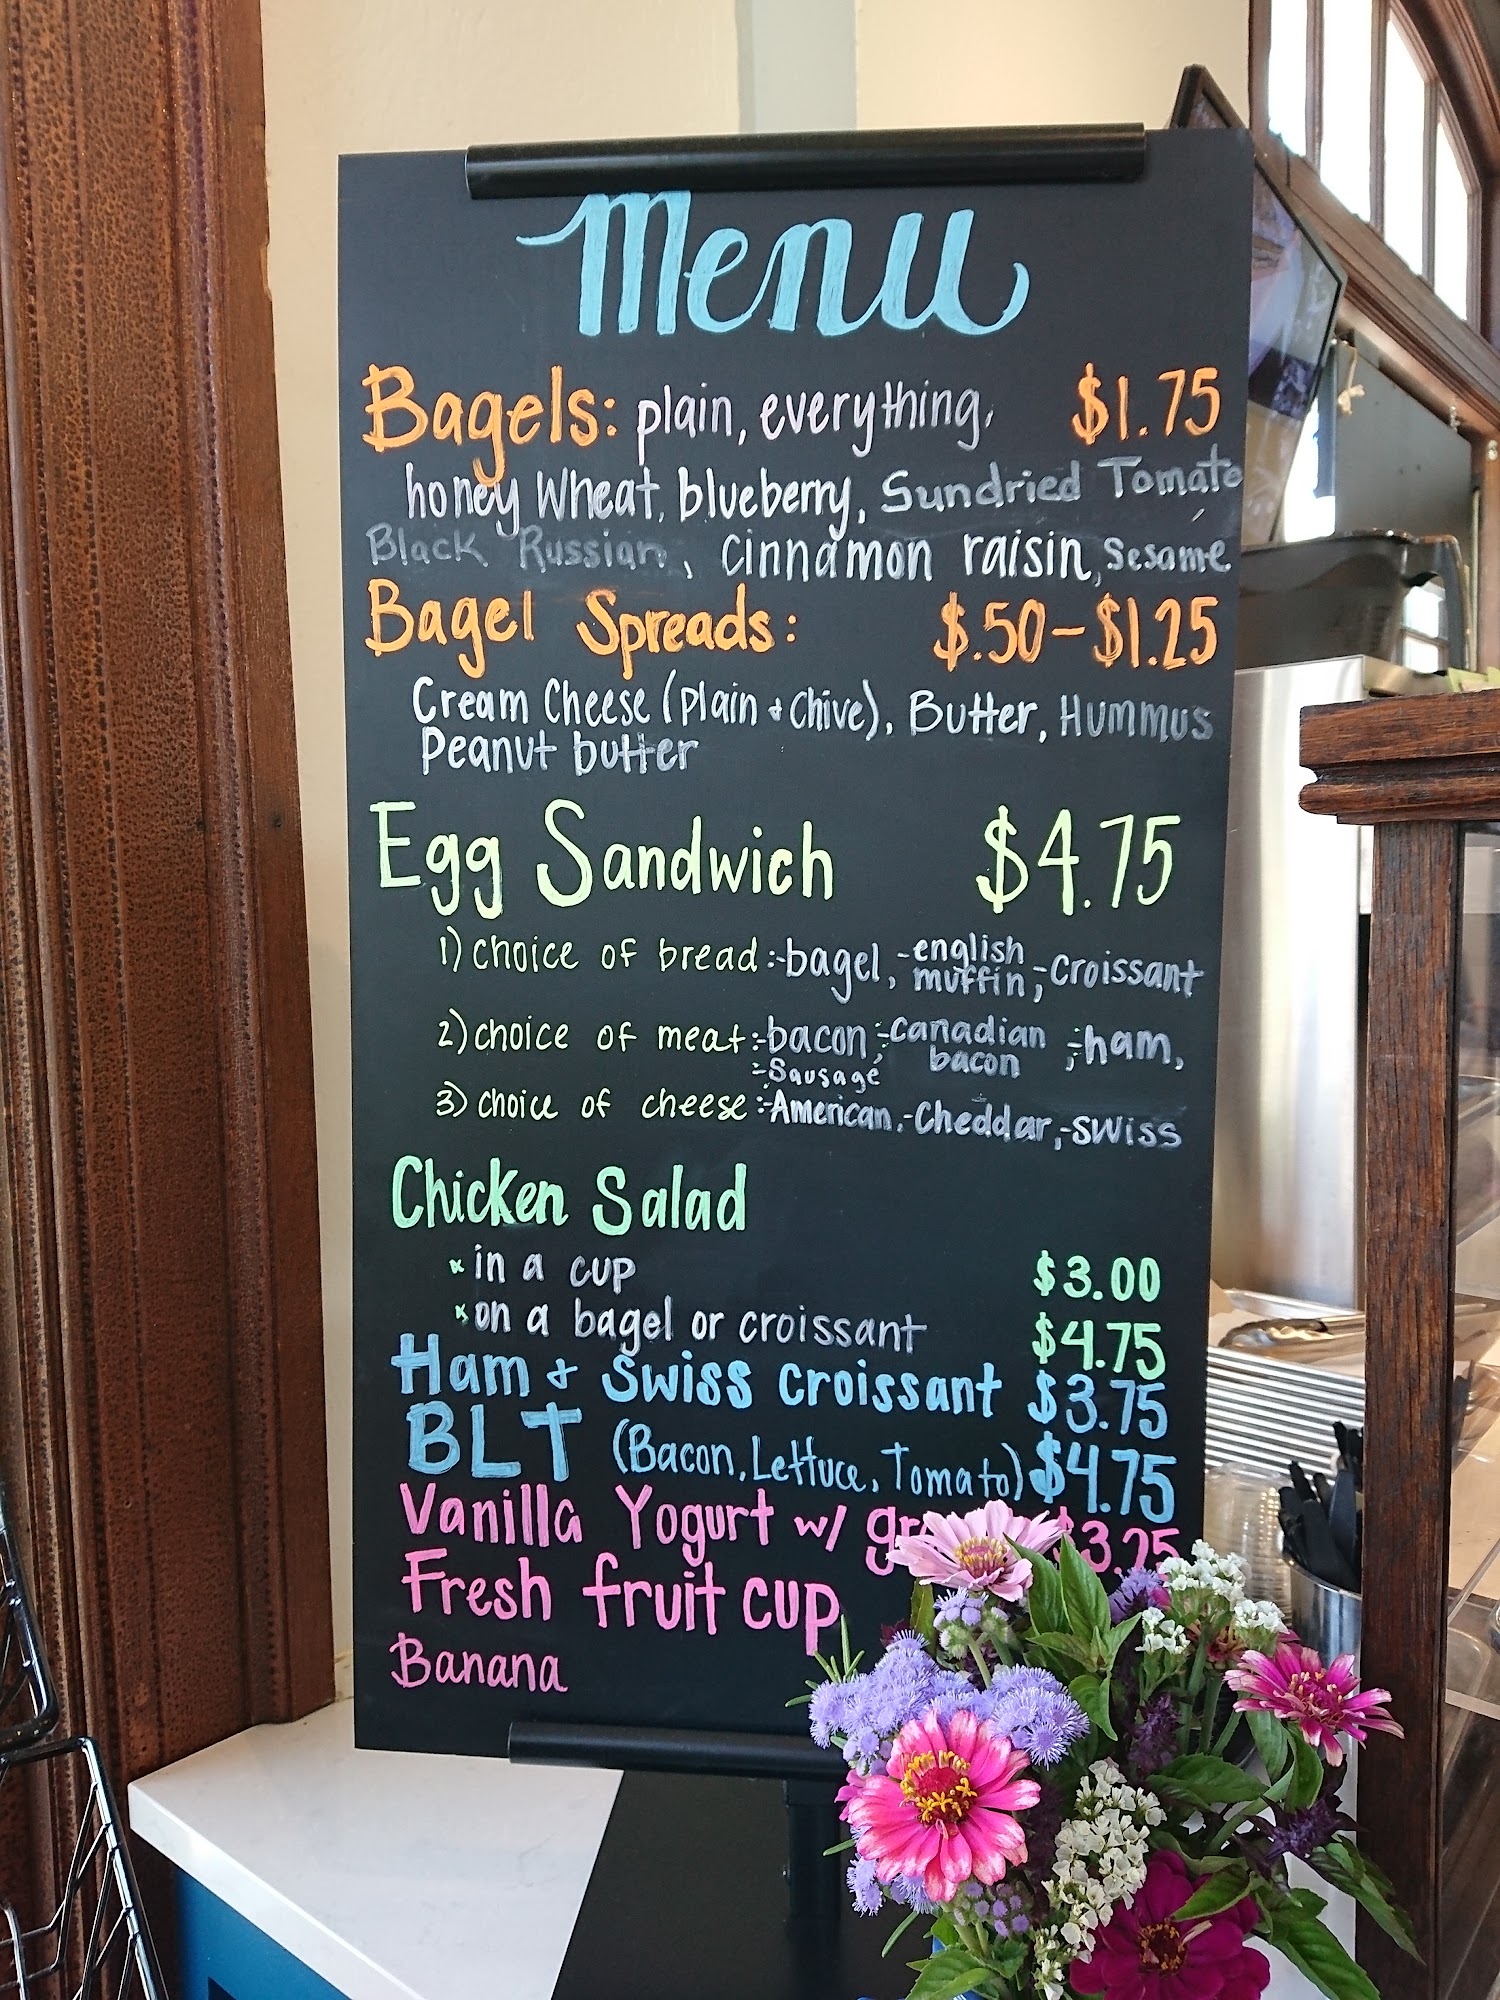 Menu
Bagels: plain, everything, $1.75
honey Wheat, blueberry, Sundried Tomato
Black Russian, cinnamon raisin, Sesame
Bagel Spreads: $.50-$1.25
Cream Cheese (plain + chive), Butter, Hummus
Peanut butter
Egg Sandwich $4.75
1) choice of bread :-bagel, -english muffin, -croissant
2) choice of meat :-bacon, -canadian bacon, -ham,
-Sausage
3) choice of cheese :-American, -Cheddar, -swiss
Chicken Salad
x in a cup $3.00
x on a bagel or croissant $4.75
Ham + Swiss croissant $3.75
BLT (Bacon, Lettuce, Tomato) $4.75
Vanilla Yogurt w/ $3.25
Fresh fruit cup
Banana